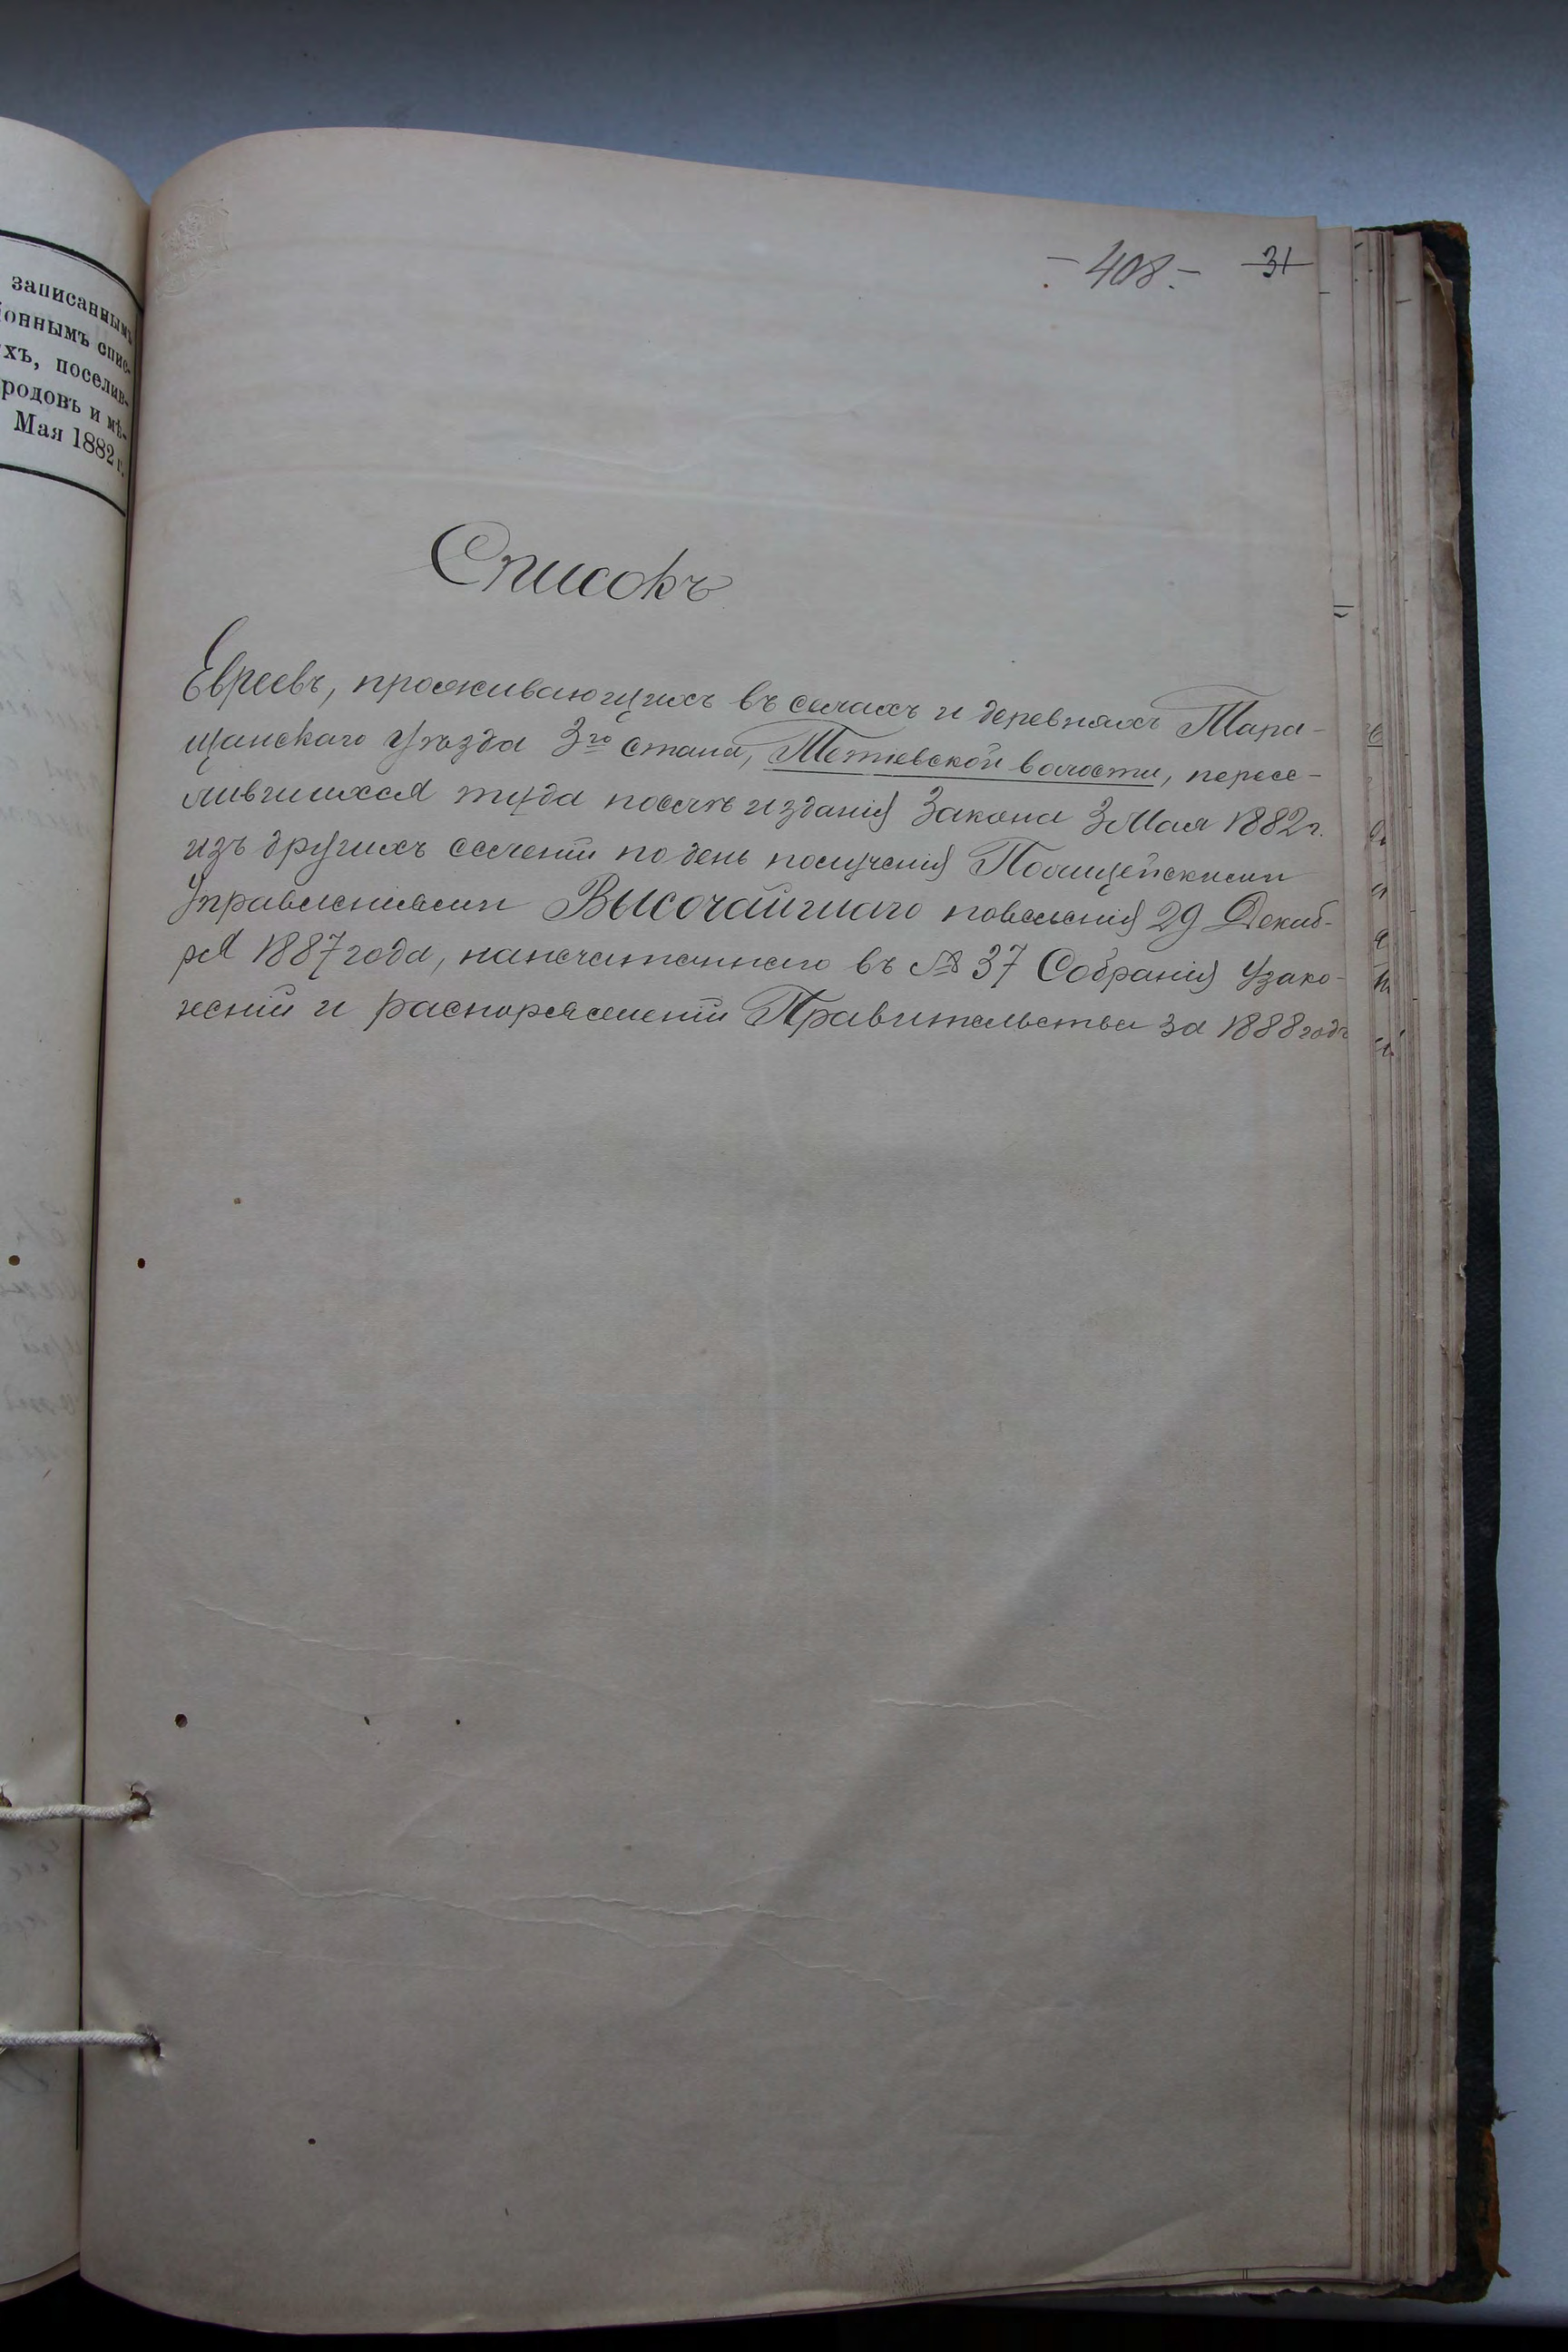 записаннымъ
оннымъ спис-
хъ, поселив-
родовъ и мѣ-
Мая 1882 г.
- 408. - 31
Списокъ
Евреевъ, проживающихъ въ селахъ и деревняхъ Тара-
щанскаго уѣзда 3го стана, Тетіевской волости, пересе-
лившихся туда послѣ изданія Закона 3 Мая 1882 г.
изъ другихъ селеній по день полученія Полицейскими
Управленіями Высочайшаго повелѣнія 29 Декаб-
ря 1887 года, напечатаннаго въ № 37 Собранія Узако-
неній и распоряженій Правительства за 1888 годъ